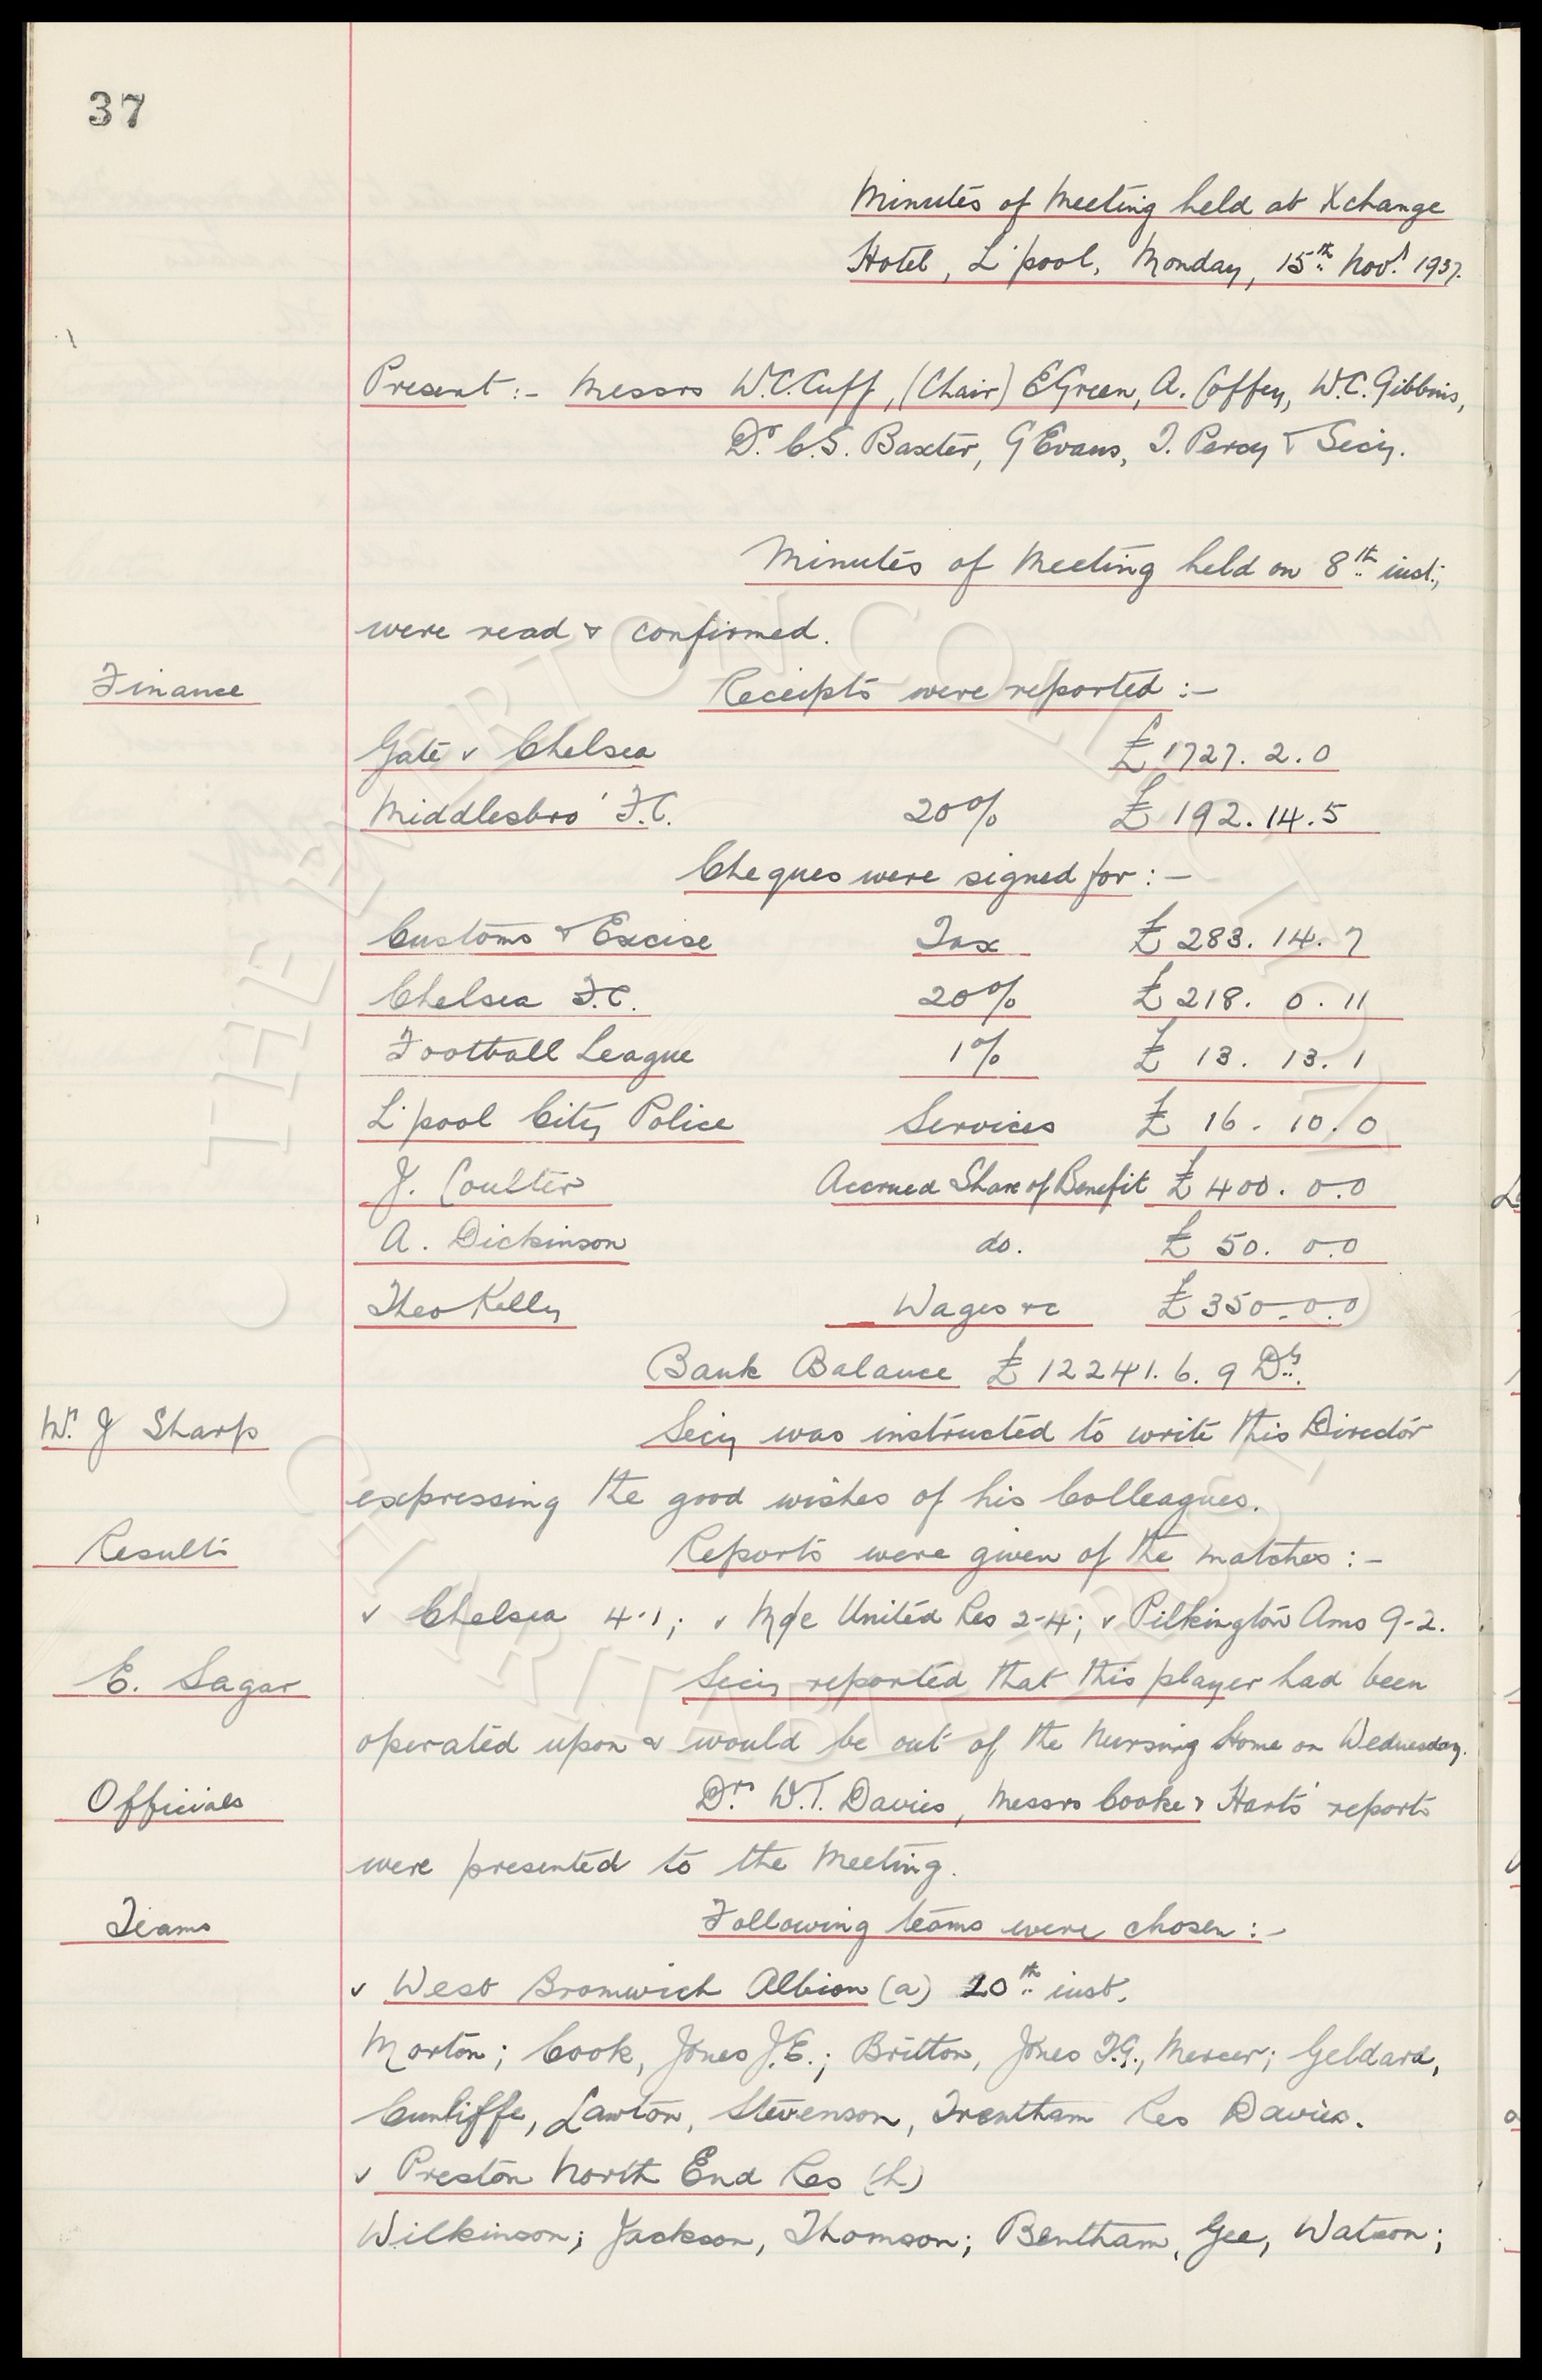 37
Minutes of Meeting held at Xchange
Hotel, L'pool, Monday, 15th Novr 1937.
Present:- Messrs W.C. Cuff, (Chair) E Green, A. Coffey, W.C. Gibbins,
Dr. C.S. Baxter, G Evans, T. Percy & Secy.
Minutes of Meeting held on 8th inst;
were read & confirmed.
Finance Receipts were reported:-
Gate v Chelsea £1727.2.0
Middlesbro' F.C. 20% £192.14.5
Cheques were signed for:-
Customs & Excise Tax £283.14.7
Chelsea F.C. 20% £218.0.11
Football League 1% £13.13.1
L'pool City Police Services £16.10.0
J. Coulter Accrued Share of Benefit £400.0.0
A. Dickinson do. £50.0.0
Theo Kelly Wages &c £350.0.0
Bank Balance £12241.6.9 Dr.
Mr. J Sharp Secy was instructed to write this Director
expressing the good wishes of his Colleagues.
Results Reports were given of the matches:-
v Chelsea 4-1; v M/c United Res 2-4; v Pilkington Ams 9-2.
E. Sagar Secy reported that this player had been
operated upon & would be out of the Nursing Home on Wednesday.
Officials Drs W.T. Davies, Messrs Cooke & Harts' reports
were presented to the Meeting.
Teams Following teams were chosen:-
v West Bromwich Albion (a) 20th inst.
Morton; Cook, Jones J.E.; Britton, Jones T.G., Mercer; Geldard,
Cunliffe, Lawton, Stevenson, Trentham Res Davies.
v Preston North End Res (h)
Wilkinson; Jackson, Thomson; Bentham, Gee, Watson;